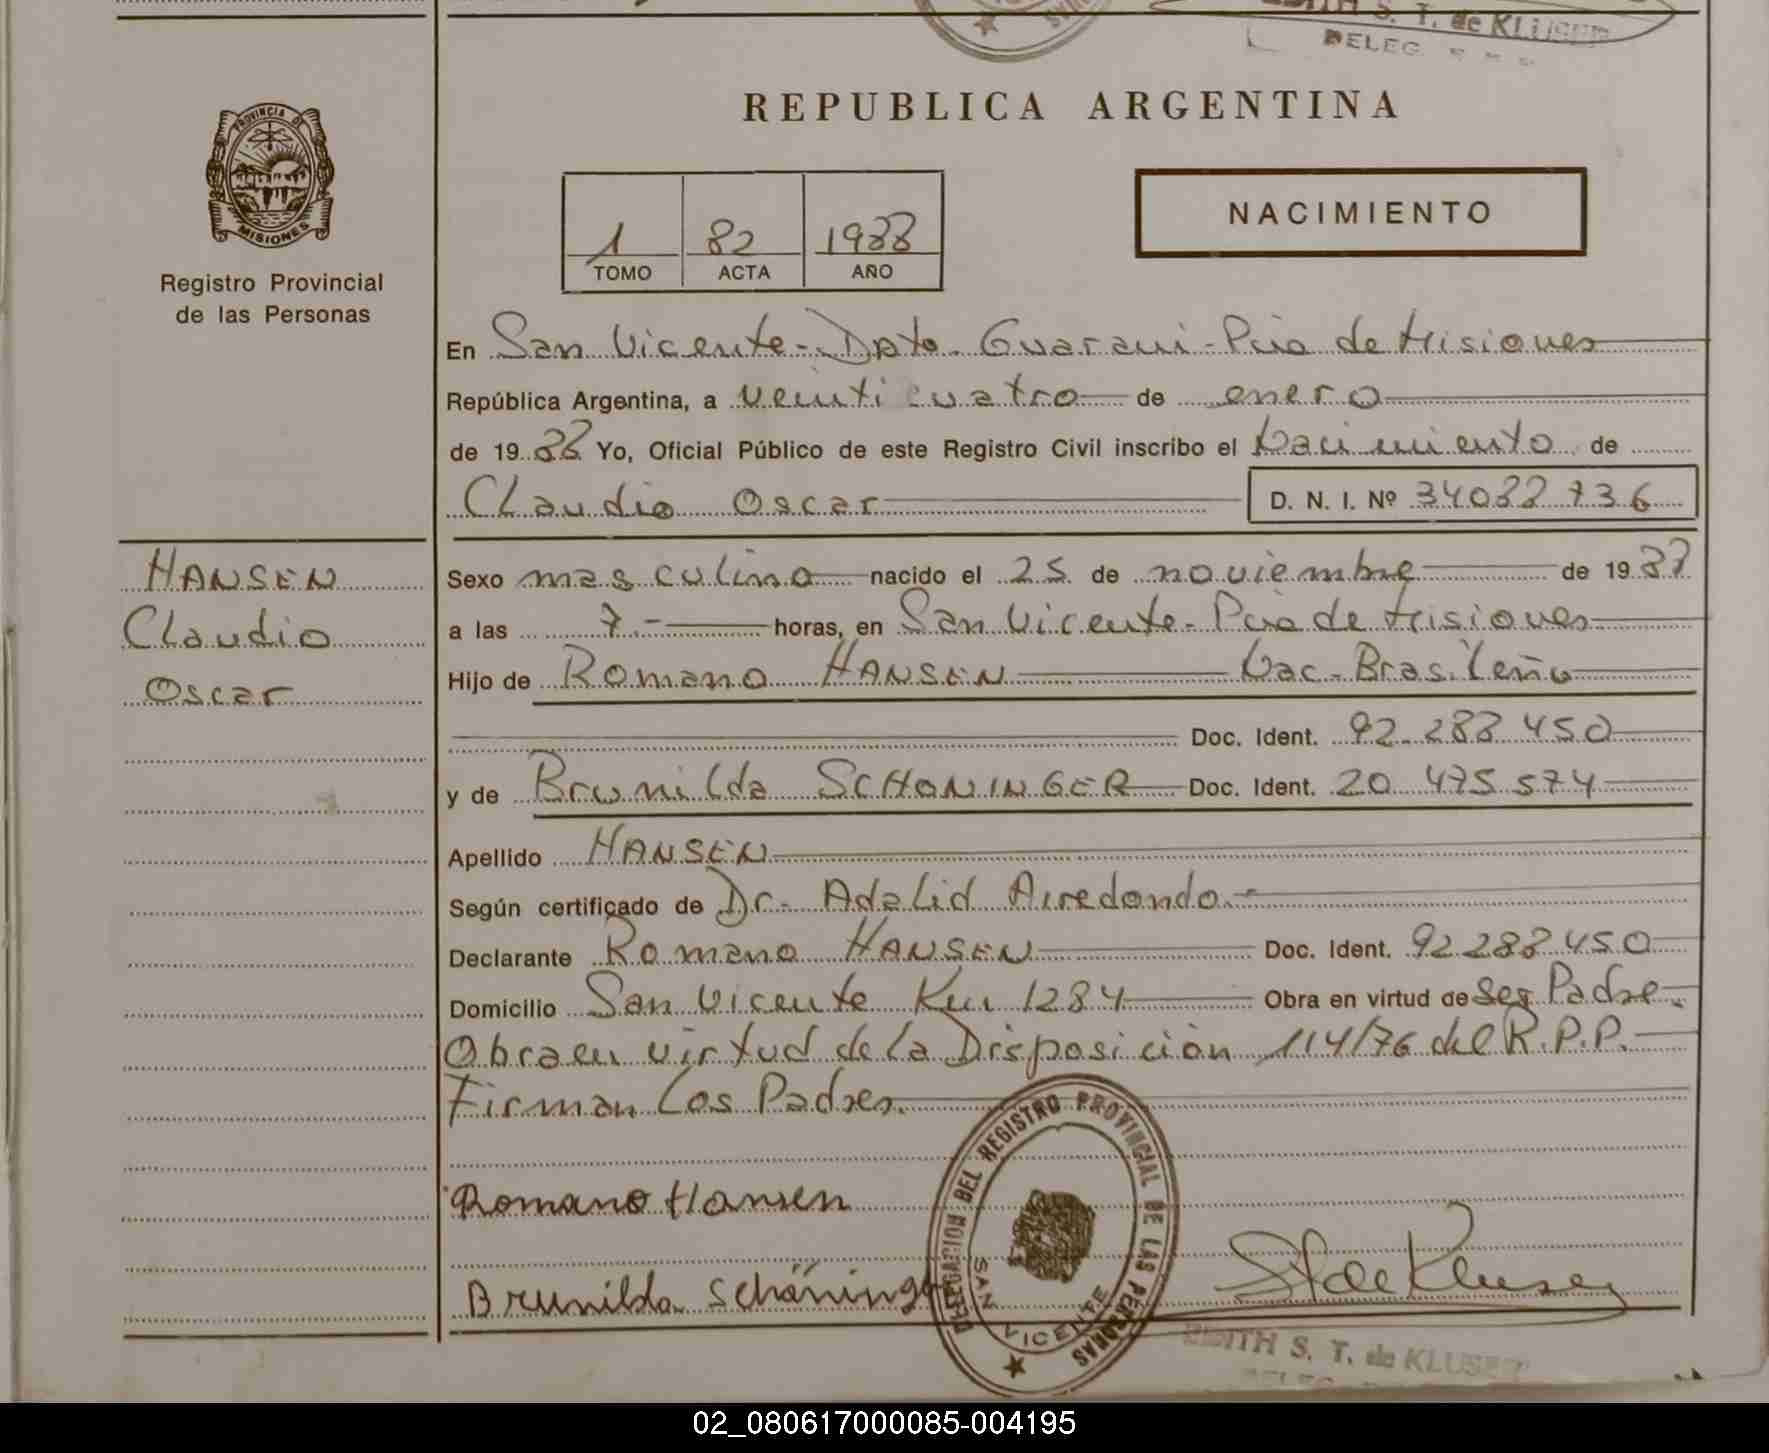 EDITH S. T. de KLUSER
DELEG.
PROVINCIA DE
MISIONES
Registro Provincial
de las Personas
REPUBLICA ARGENTINA
1 82 1988
TOMO ACTA AÑO
NACIMIENTO
En San Vicente - Dpto. Guarani - Pcia de Misiones
República Argentina, a veinticuatro de enero
de 19 88 Yo, Oficial Público de este Registro Civil inscribo el Nacimiento de
Claudio Oscar D. N. I. Nº 34088736
HANSEN
Claudio
Oscar
Sexo masculino nacido el 25 de noviembre de 19 87
a las 7.- horas, en San Vicente - Pcia de Misiones
Hijo de Romano HANSEN Nac - Brasileño
Doc. Ident. 92.288 450
y de Brunilda SCHONINGER Doc. Ident. 20 475 574
Apellido HANSEN
Según certificado de Dr. Adalid Arredondo.-
Declarante Romano HANSEN Doc. Ident. 92.288 450
Domicilio San Vicente Km 1284 Obra en virtud de ser Padre.
Obra en virtud de la Disposición 114/76 del R.P.P.
Firman Los Padres.
Romano Hansen
Brunilda Schöninger
DELEGACION DEL REGISTRO PROVINCIAL DE LAS PERSONAS
SAN VICENTE
EDITH S. T. de KLUSER
02_080617000085-004195